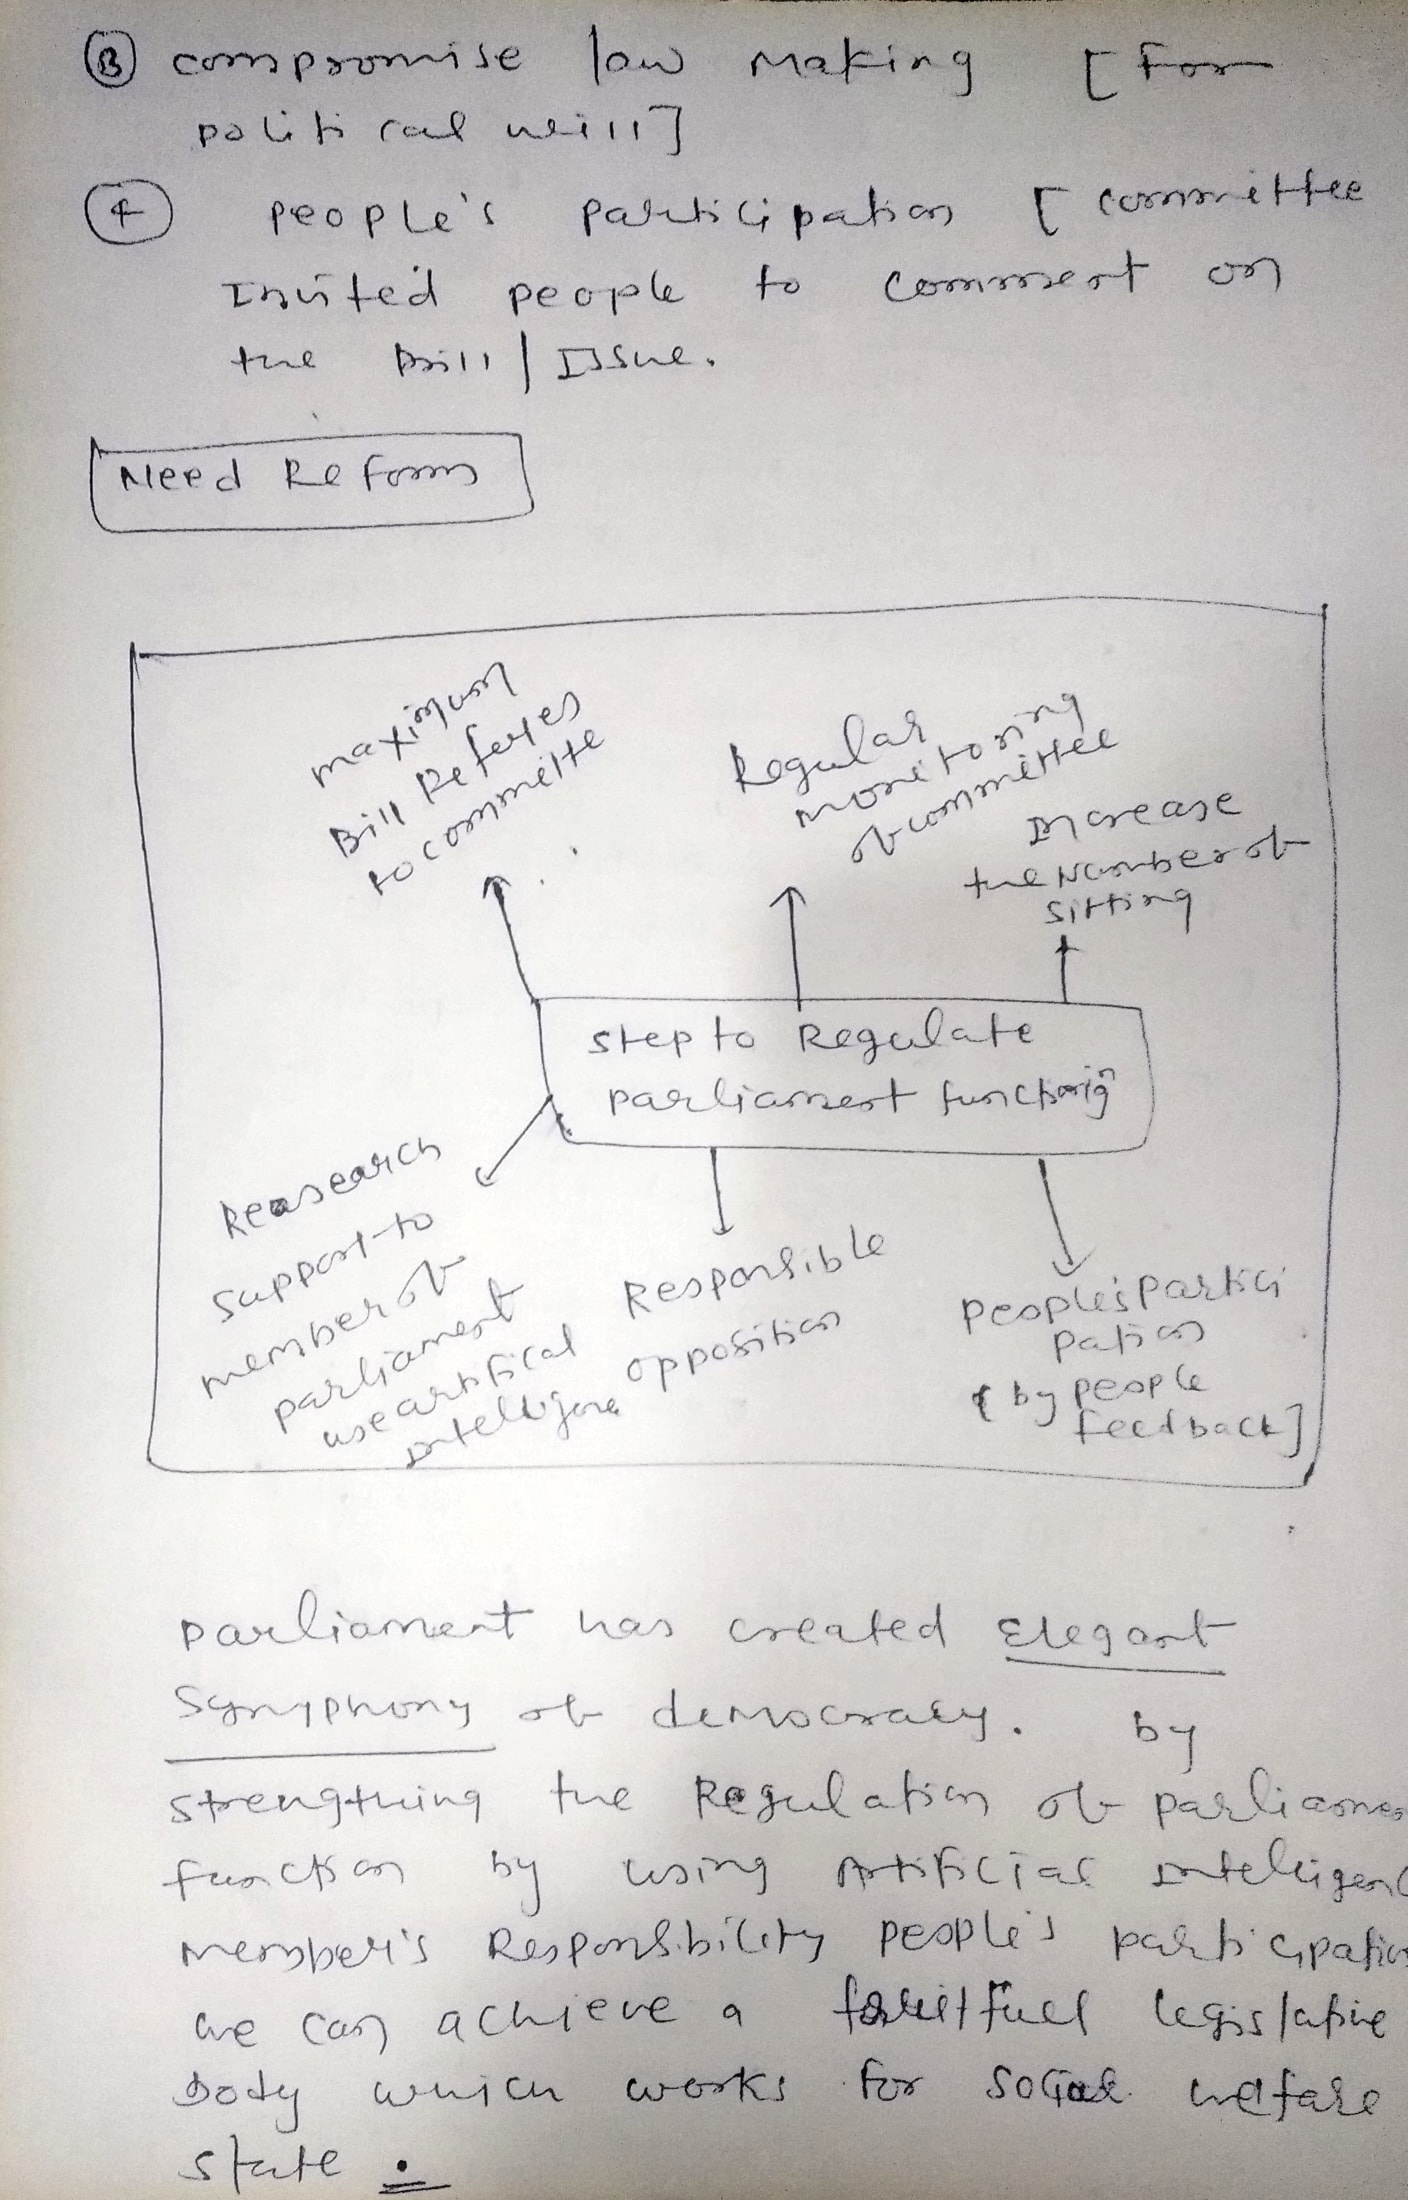 ③ compromise law making [ for
political will]
④ people's participation [ committee
Invited people to comment on
the Bill | Issue.
Need Reform
maximum
Bill Referes
to committe
Regular
monitoring
of committee
Increase
the Number of
sitting
step to Regulate
parliament functionig
Reasearch
support to
member of
parliament
use artifical
intelligene
Responsible
opposition
people's partici
pation
[ by people
feedback]
parliament has created Elegant
Synyphony of democracy. by
strengthing the Regulation of
function by using Artificial
member's Responsibility people's
we can achieve a legislative
body which works for social welfare
state .